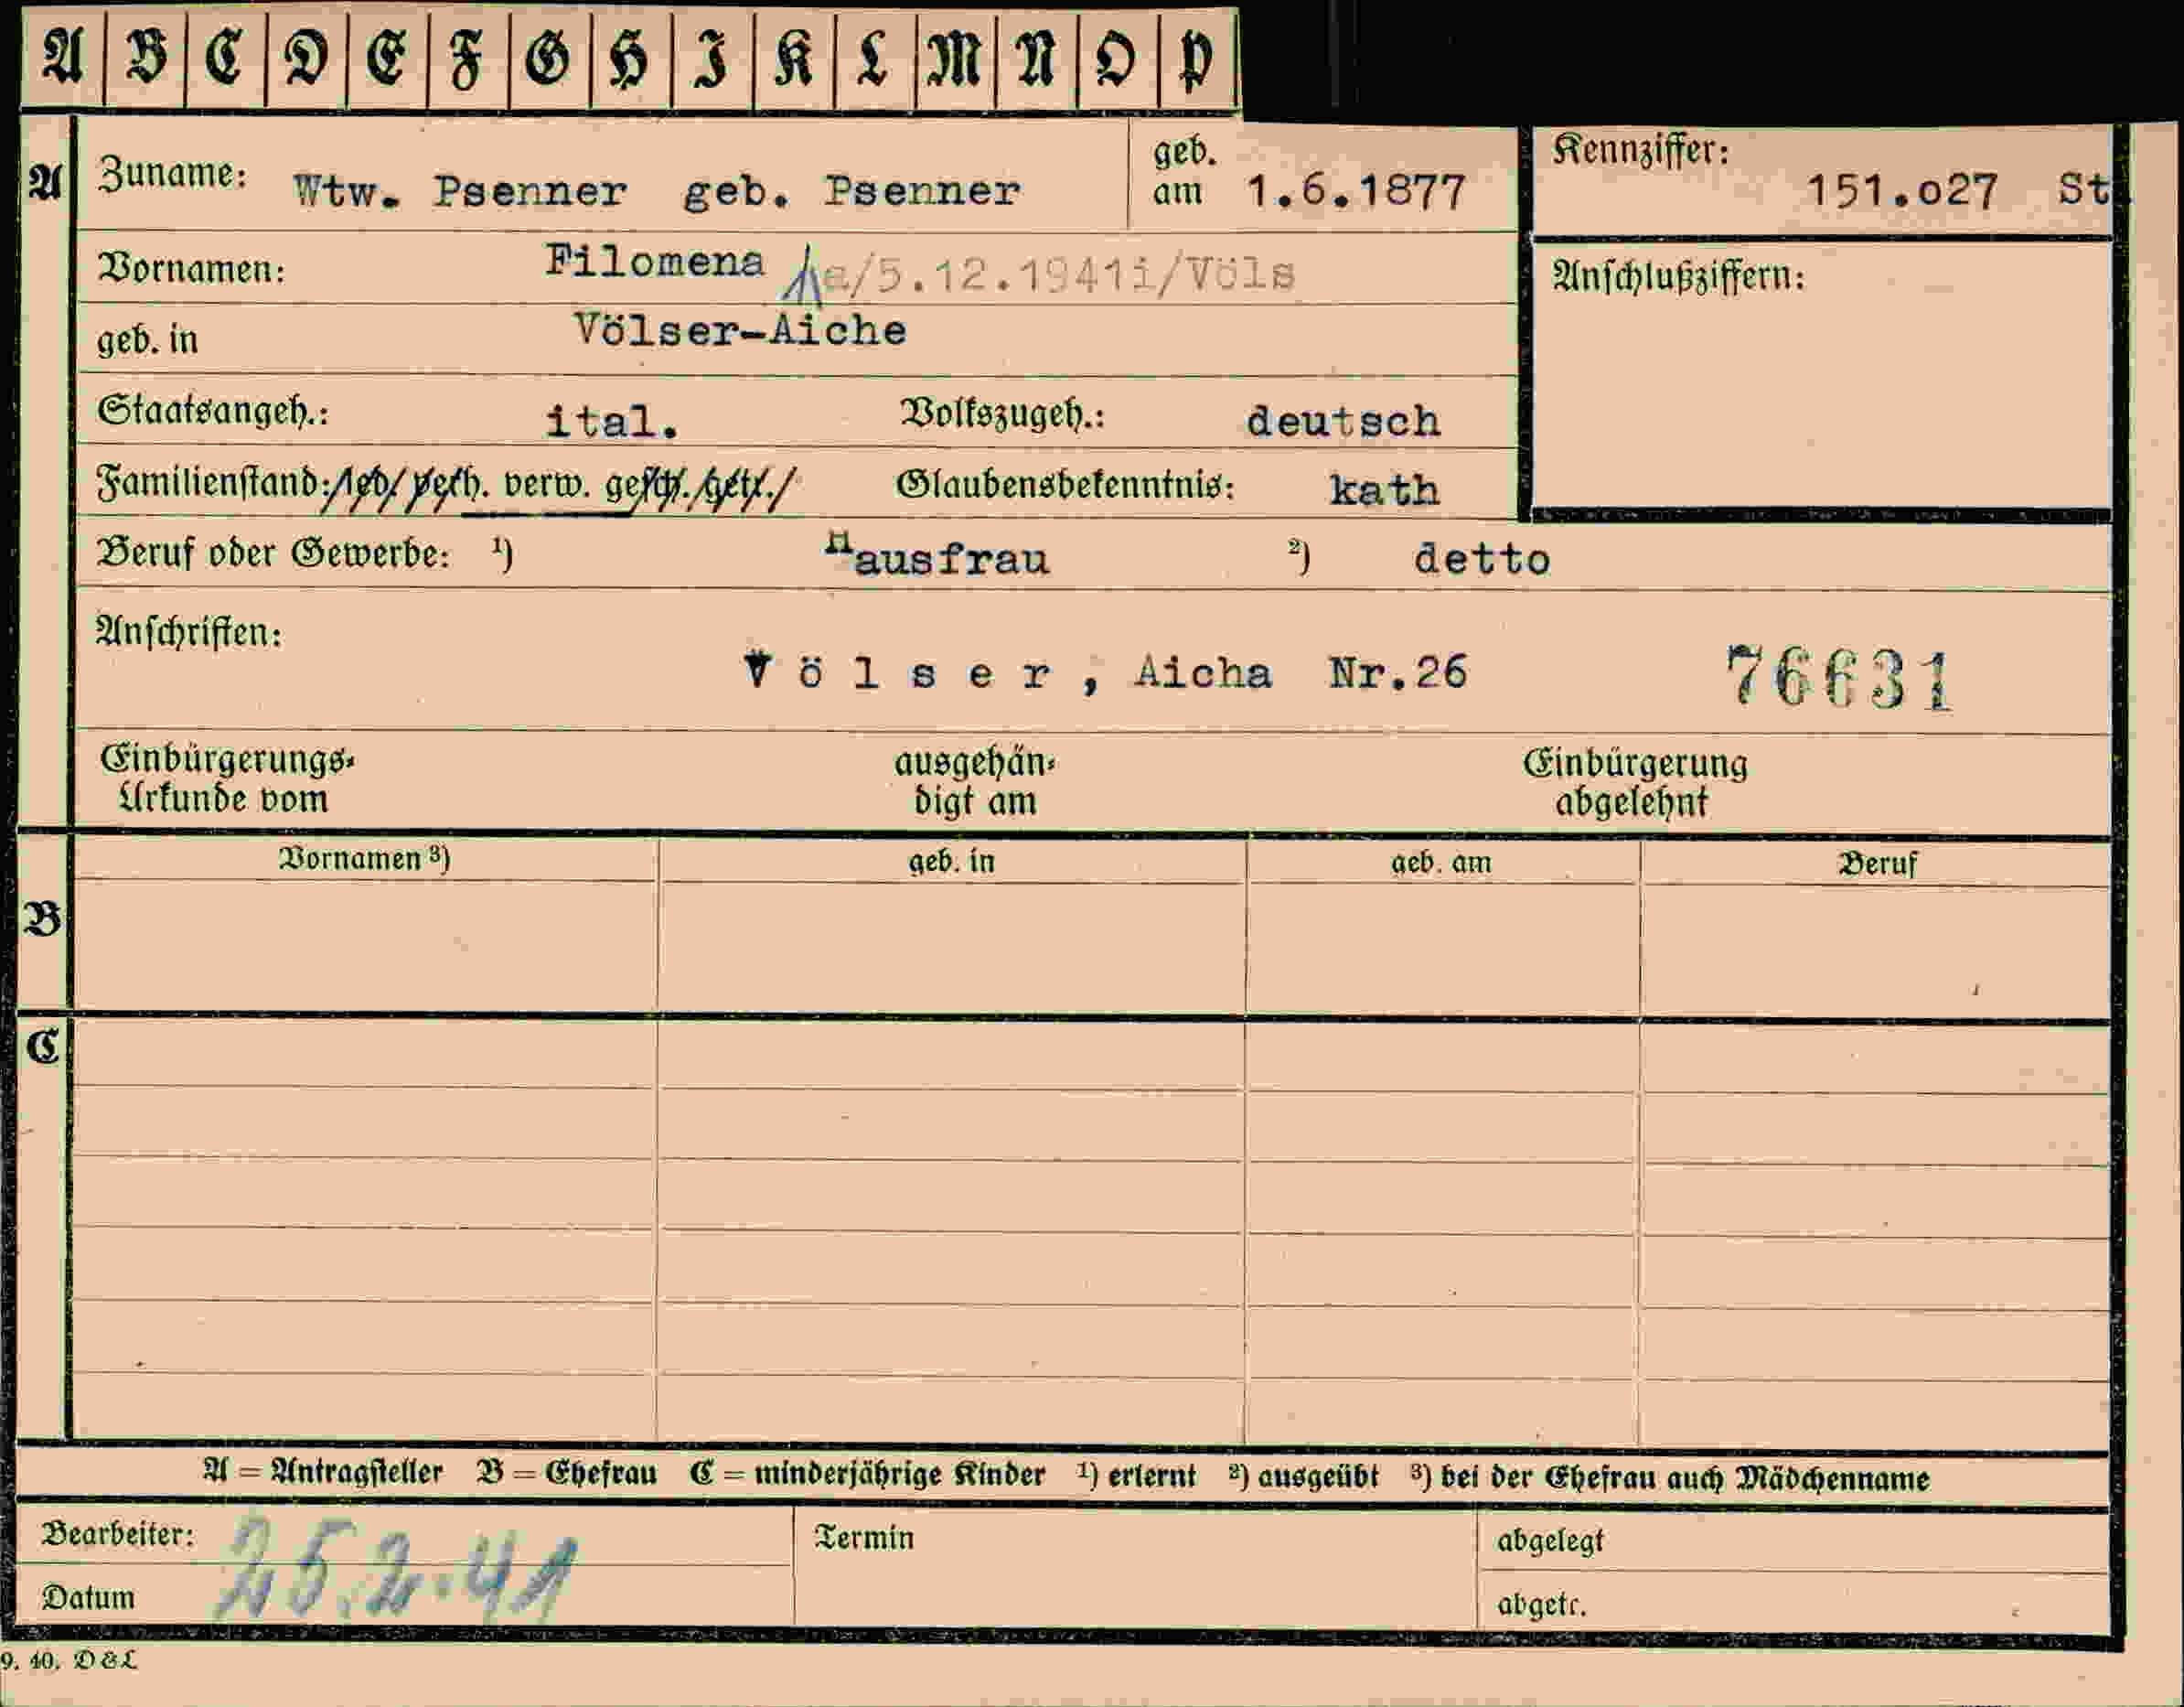 A B C D E F G H I K L M N O P
A Zuname: Wtw. Psenner geb. Psenner geb. am 1.6.1877
Kennziffer: 151.o27 St.
Vornamen: Filomena /5.12.1941i/Völs
Anschlußziffern:
geb. in Völser-Aiche
Staatsangeh.: ital. Volkszugeh.: deutsch
Familienstand: led. verh. verw. gesch. getr. Glaubensbekenntnis: kath
Beruf oder Gewerbe: ¹) Hausfrau ²) detto
Anschriften:
V ö l s e r , Aicha Nr.26 76631
Einbürgerungs- ausgehän- Einbürgerung
Urkunde vom digt am abgelehnt
Vornamen ³) geb. in geb. am Beruf
B
C
A = Antragsteller B = Ehefrau C = minderjährige Kinder ¹) erlernt ²) ausgeübt ³) bei der Ehefrau auch Mädchenname
Bearbeiter: Termin abgelegt
Datum 25.2.41 abgetr.
9. 40. D & L